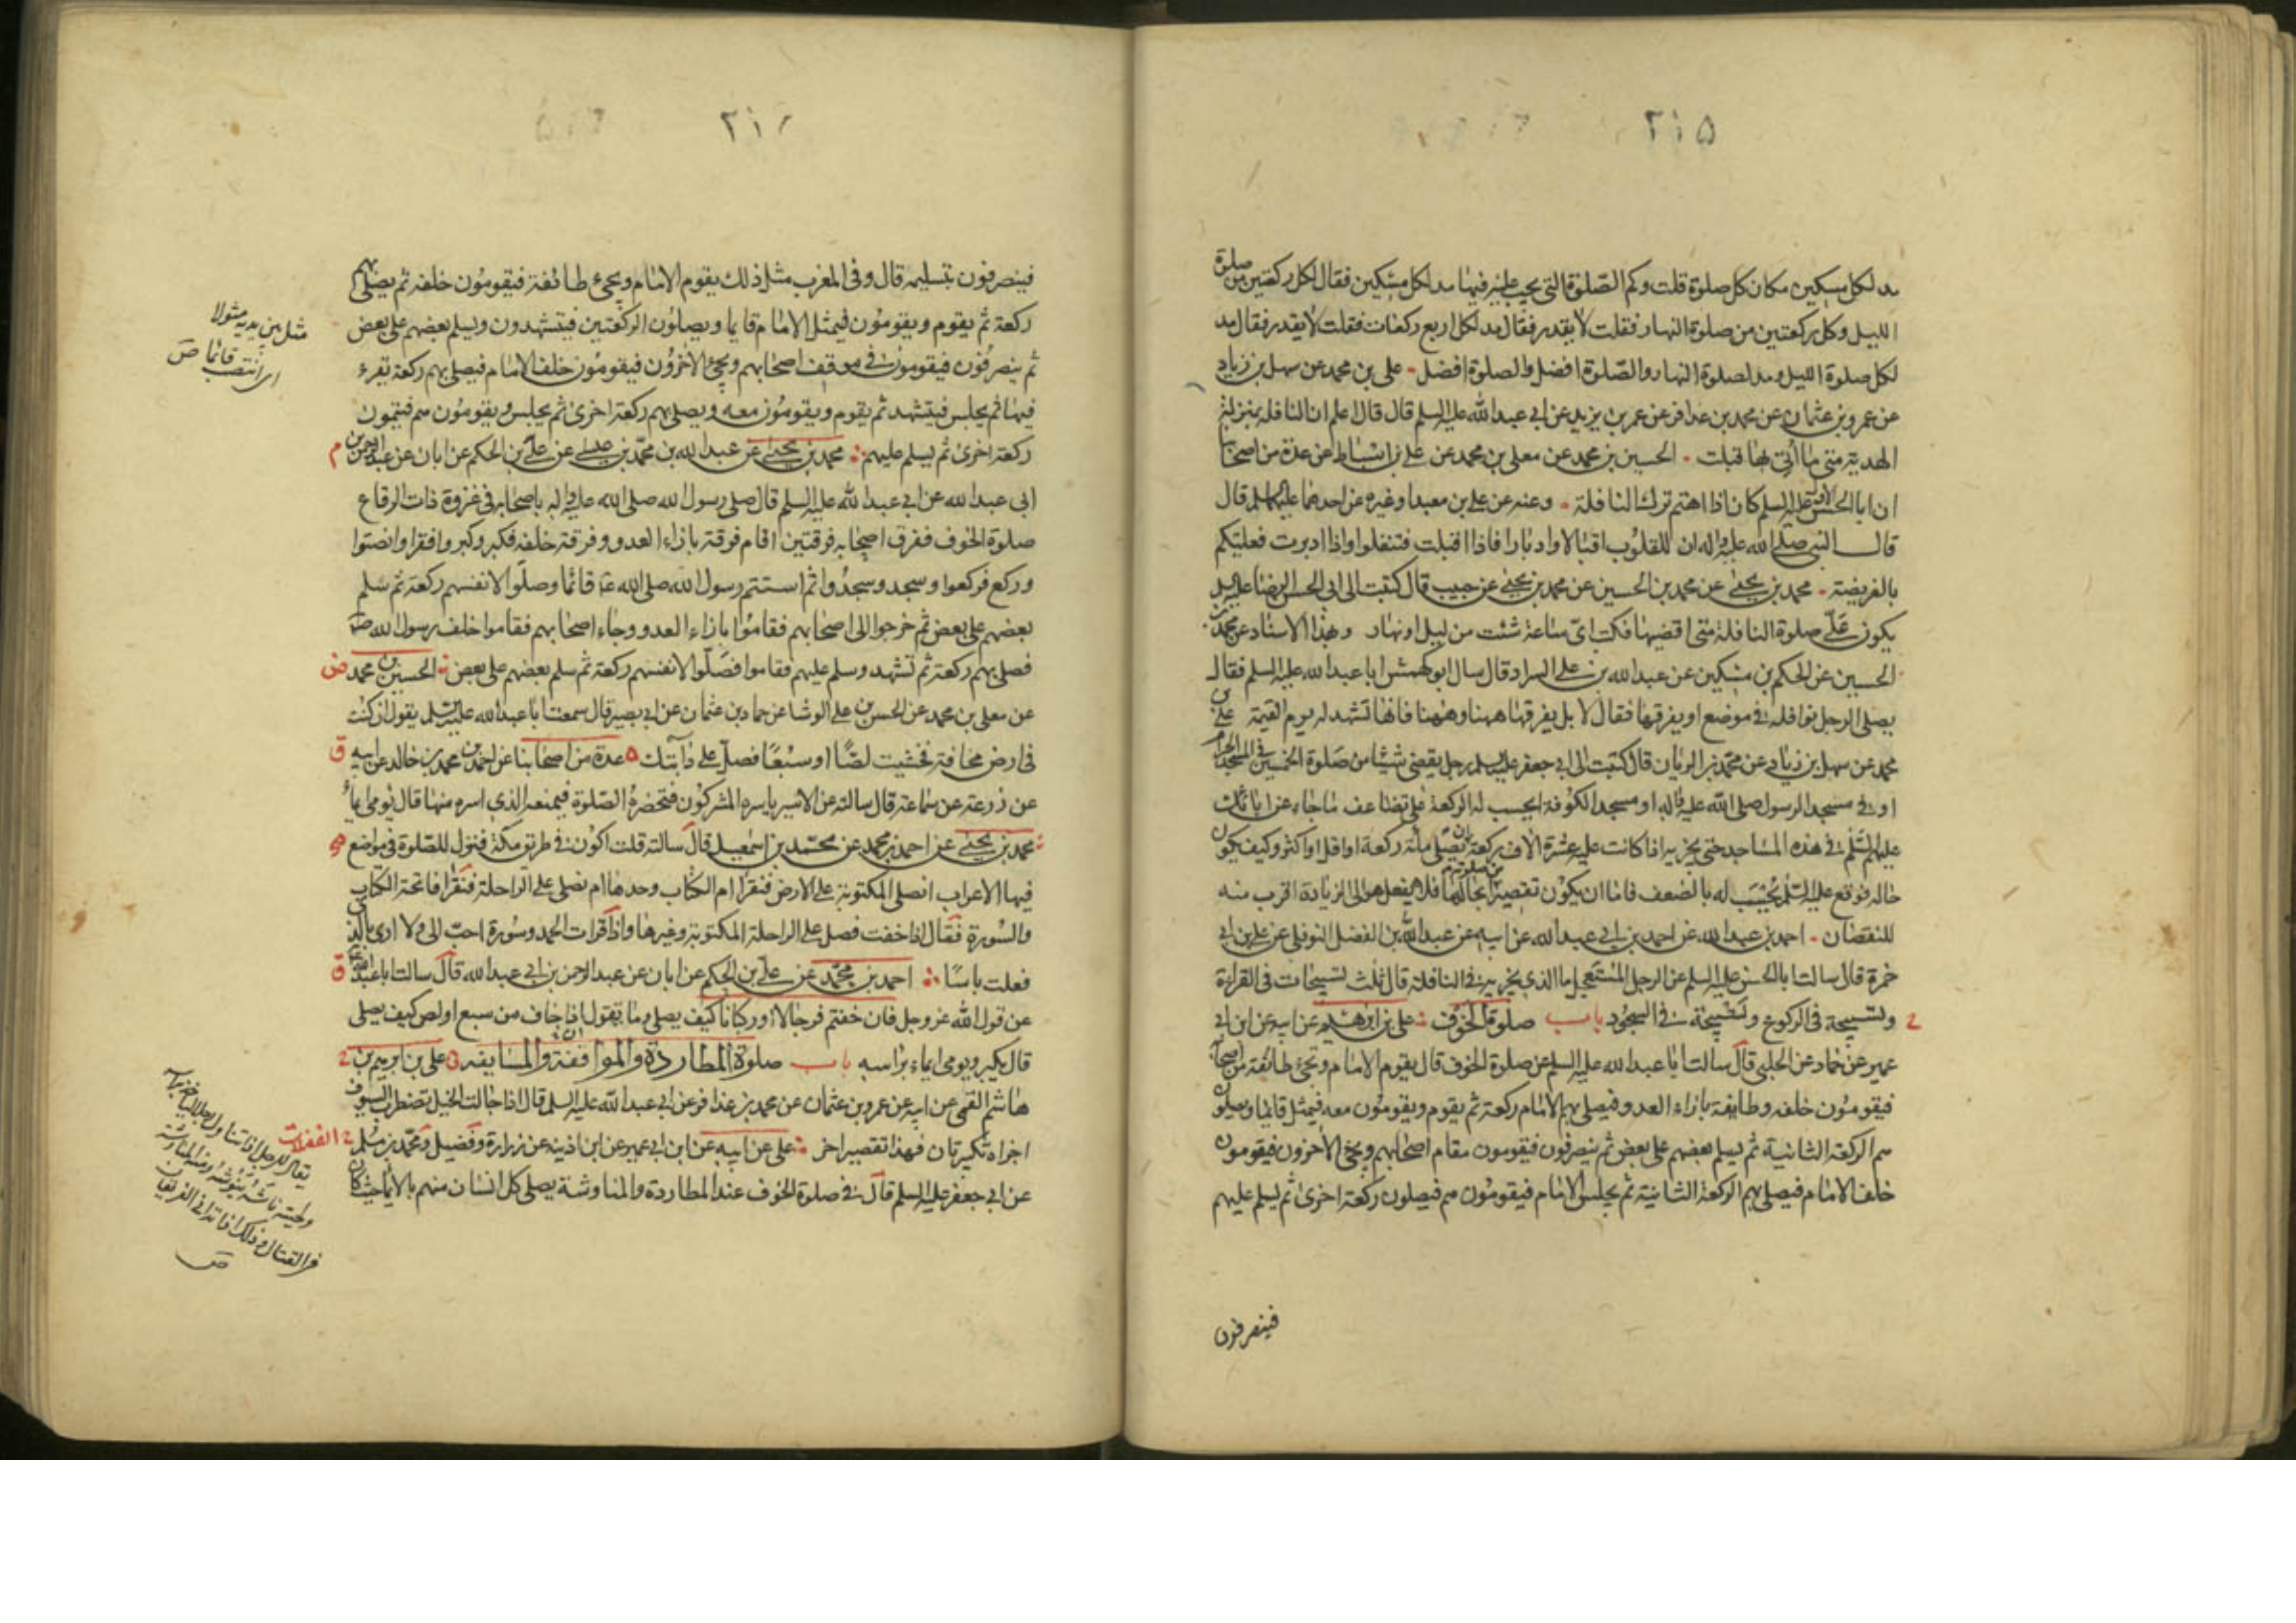 ٢١٥
مد لكل مسكين مكان كل صلوة قلت وكم الصلوة التي يجب عليه فيها مد لكل مسكين فقال لكل ركعتين من صلوة
الليل وكل ركعتين من صلوة النهار فقلت لا يقدر فقال مد لكل اربع ركعات فقلت لا يقدر فقال مد
لكل صلوة الليل ومد لصلوة النهار والصلوة افضل والصلوة افضل علي بن محمد عن سهل بن زياد
عن عمرو بن عثمان عن محمد بن عذافر عن عمر بن يزيد عن ابي عبد الله عليه السلم قال قال اعلم ان النافلة بمنزلة
الهدية متى ما اُتي بها قبلت الحسين بن محمد عن معلى بن محمد عن علي بن اسباط عن عدة من اصحابنا
ان ابا الحسن الاول عليه السلم كان اذا اهتم ترك النافلة وعنه عن علي بن معبد او غيره عن احدهما عليهما السلم قال
قال النبي صلى الله عليه واله ان للقلوب اقبالا وادبارا فاذا اقبلت فتنفلوا واذا ادبرت فعليكم
بالفريضة محمد بن يحيى عن محمد بن الحسين عن محمد بن يحيى عن حبيب قال كتبت الى ابي الحسن الرضا عليه السلم
يكون عليّ صلوة النافلة متى اقضيها فكتب اىّ ساعة شئت من ليل او نهار وبهذا الاسناد عن محمد بن
الحسين عن الحكم بن مسكين عن عبد الله بن علي السراد قال سال ابو كهمش ابا عبد الله عليه السلم فقال
يصلى الرجل نوافله في موضع او يفرقها فقال لا بل يفرقها ههنا وههنا فانها تشهد له يوم القيمة علي بن
محمد عن سهل بن زياد عن محمد بن الريان قال كتبت الى ابي جعفر عليه السلم رجل يقضي شيئا من صلوة الخمسين في المسجد الحرام
او في مسجد الرسول صلى الله عليه واله او مسجد الكوفة ايحسب له الركعة على تضاعف ما جاء عن ابائك
عليهم السلم في هذه المساجد حتى يجزيه اذا كانت عليه عشرة الاف ركعة ان يصلى مائة ركعة او اقل او اكثر وكيف يكون
حاله فوقع عليه السلم يُحسَب له بالضعف فاما ان يكون تقصيرا من صلوته بحالها فلا يفعل هو الى الزيادة اقرب منه
للنقصان احمد بن عبد الله عن احمد بن ابي عبد الله عن ابيه عن عبد الله بن الفضل النوفلي عن علي بن ابي
حمزة قال سالت ابا الحسن عليه السلم عن الرجل المستعجل ما الذي يجزيه في النافلة قال ثلث تسبيحات في القراءة
وتسبيحة في الركوع وتسبيحة في السجود باب صلوة الخوف علي بن ابرهيم عن ابيه عن ابن ابي
عمير عن حماد عن الحلبي قال سالت ابا عبد الله عليه السلم عن صلوة الخوف قال يقوم الامام وتجئ طائفة من اصحابه
فيقومون خلفه وطايفة بازاء العدو فيصلي بهم الامام ركعة ثم يقوم ويقومون معه فيمثل قائما ويصلون
هم الركعة الثانية ثم يسلم بعضهم على بعض ثم ينصرفون فيقومون مقام اصحابهم ويجئ الآخرون فيقومون
خلف الامام فيصلي بهم الركعة الثانية ثم يجلس الامام فيقومون هم فيصلون ركعة اخرى ثم يسلم عليهم
فينصرفون
فينصرفون بتسليمه قال وفى المغرب مثل ذلك يقوم الامام ويجئ طائفة فيقومون خلفه ثم يصلي بهم
ركعة ثم يقوم ويقومون فيمثل الامام قايما ويصلون الركعتين فيتشهدون ويسلم بعضهم على بعض
ثم ينصرفون فيقومون في موقف اصحابهم ويجئ الآخرون فيقومون خلف الامام فيصلي بهم ركعة يقرء
فيها ثم يجلس فيتشهد ثم يقوم ويقومون معه ويصلي بهم ركعة اخرى ثم يجلس ويقومون هم فيتمون
ركعة اخرى ثم يسلم عليهم محمد بن يحيى عن عبد الله بن محمد بن عيسى عن علي بن الحكم عن ابان عن عبد الرحمن بن
ابي عبد الله عن ابي عبد الله عليه السلم قال صلى رسول الله صلى الله عليه واله باصحابه في غزوة ذات الرقاع
صلوة الخوف ففرق اصحابه فرقتين اقام فرقة بازاء العدو وفرقة خلفه فكبر وكبروا فقرا وانصتوا
وركع فركعوا وسجد وسجدوا ثم استتم رسول الله صلى الله عليه قائما وصلوا لانفسهم ركعة ثم سلم
بعضهم على بعض ثم خرجوا الى اصحابهم فقاموا بازاء العدو وجاء اصحابهم فقاموا خلف رسول الله ص
فصلى بهم ركعة ثم تشهد وسلم عليهم فقاموا فصلّوا لانفسهم ركعة ثم سلم بعضهم على بعض الحسين بن محمد
عن معلى بن محمد عن الحسن بن علي الوشا عن حماد بن عثمان عن ابي بصير قال سمعت ابا عبد الله عليه السلم يقول ان كنت
في ارض مخافة فخشيت لصّا او سبُعًا فصلّ على دابتك عدة من اصحابنا عن احمد بن محمد بن خالد عن ابيه
عن زرعة عن سماعة قال سالته عن الاسير ياسره المشركون فتحضره الصلوة فيمنعه الذي اسره منها قال يومى ايماءً
محمد بن يحيى عن احمد بن محمد عن محمد بن اسمعيل قال سالته قلت اكون في طريق مكة فننزل للصلوة في مواضع
فيها الاعراب انصلي المكتوبة على الارض فنقرا ام الكتاب وحدها ام نصلي على الراحلة فنقرا فاتحة الكتاب
والسورة فقال اذا خفت فصل على الراحلة المكتوبة وغيرها واذا قرات الحمد وسورة احبّ الى ولا ارى بالذي
فعلت باسًا احمد بن محمد عن علي بن الحكم عن ابان عن عبد الرحمن بن ابي عبد الله قال سالت ابا عبد الله
عن قول الله عز وجل فان خفتم فرجالا او ركبانا كيف يصلي وما يقول اذا خاف من سبع او لص كيف يصلي
قال يكبر ويومى ايماء براسه باب صلوة المطاردة والمواقفة والمسايفة علي بن ابرهيم بن
هاشم القمي عن ابيه عن عمرو بن عثمان عن محمد بن عذافر عن ابي عبد الله عليه السلم قال اذا جالت الخيل تضطرب السيوف
اجزاه تكبيرتان فهذا تقصير اخر علي عن ابيه عن ابن ابي عمير عن ابن اذينه عن زرارة وفضيل ومحمد بن مسلم
عن ابي جعفر عليه السلم قال في صلوة الخوف عند المطاردة والمناوشة يصلي كل انسان منهم بالايماء حيث كان
مثل بين يديه مثولا
اى انتصب قائما ص